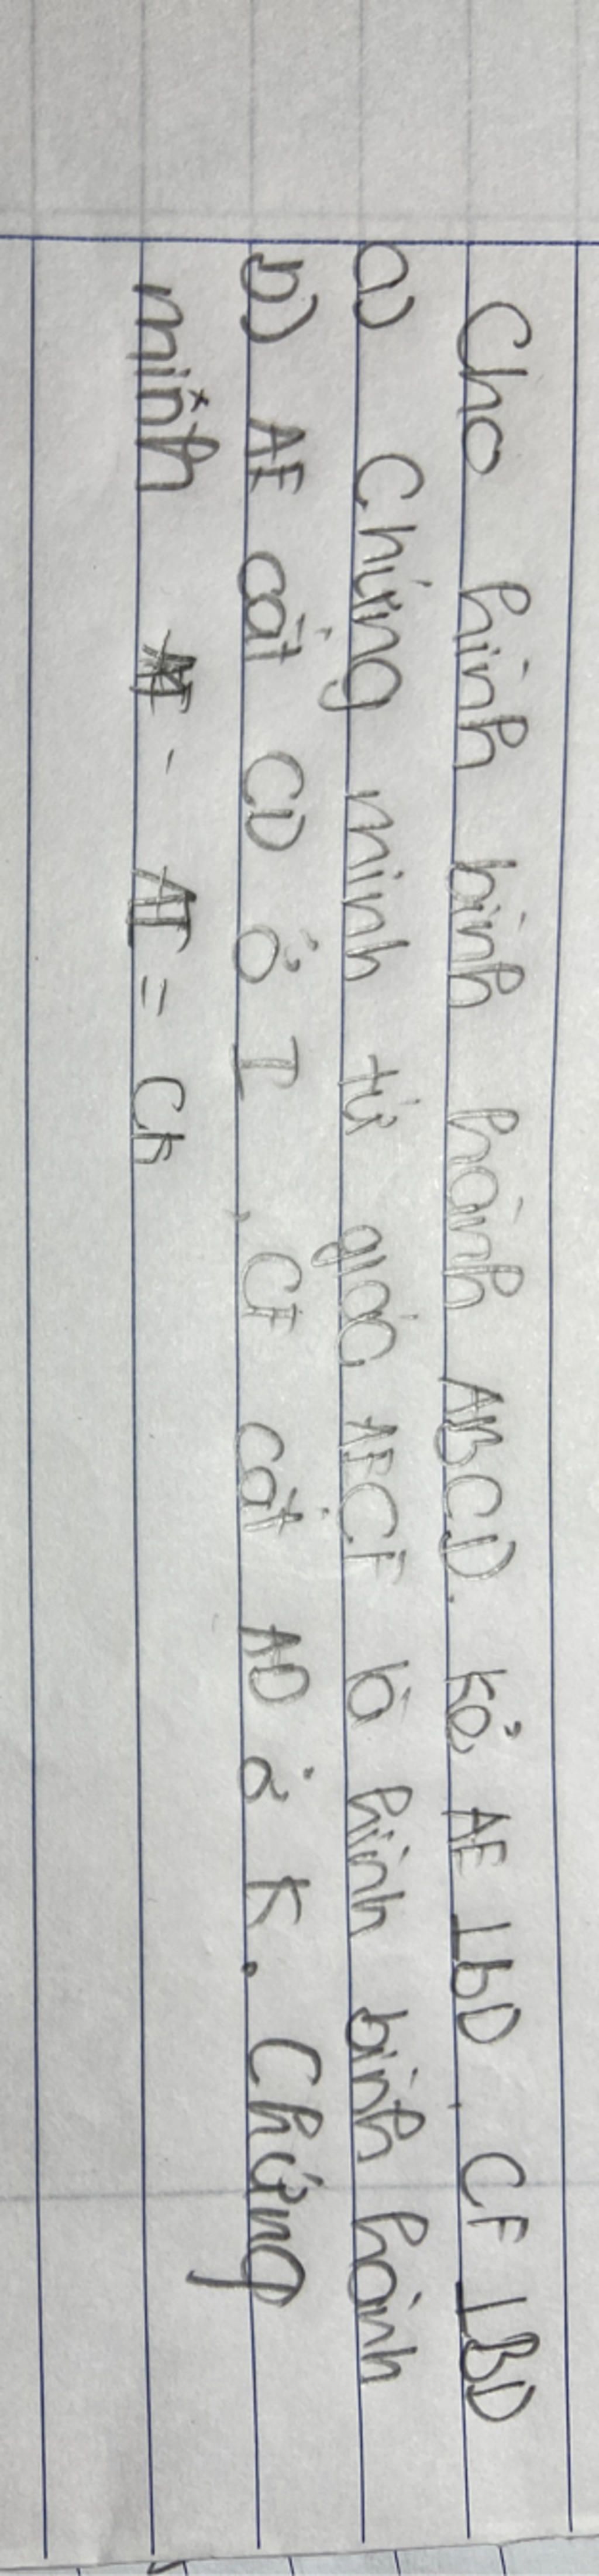 Cho hình bình hành ABCD. kẻ AE ⊥bD, CF ⊥BD
a) Chứng minh tứ giác AECF là hình bình hành
b) AE cắt CD ở I, CF cắt AD ở K. Chứng
minh AI = CK